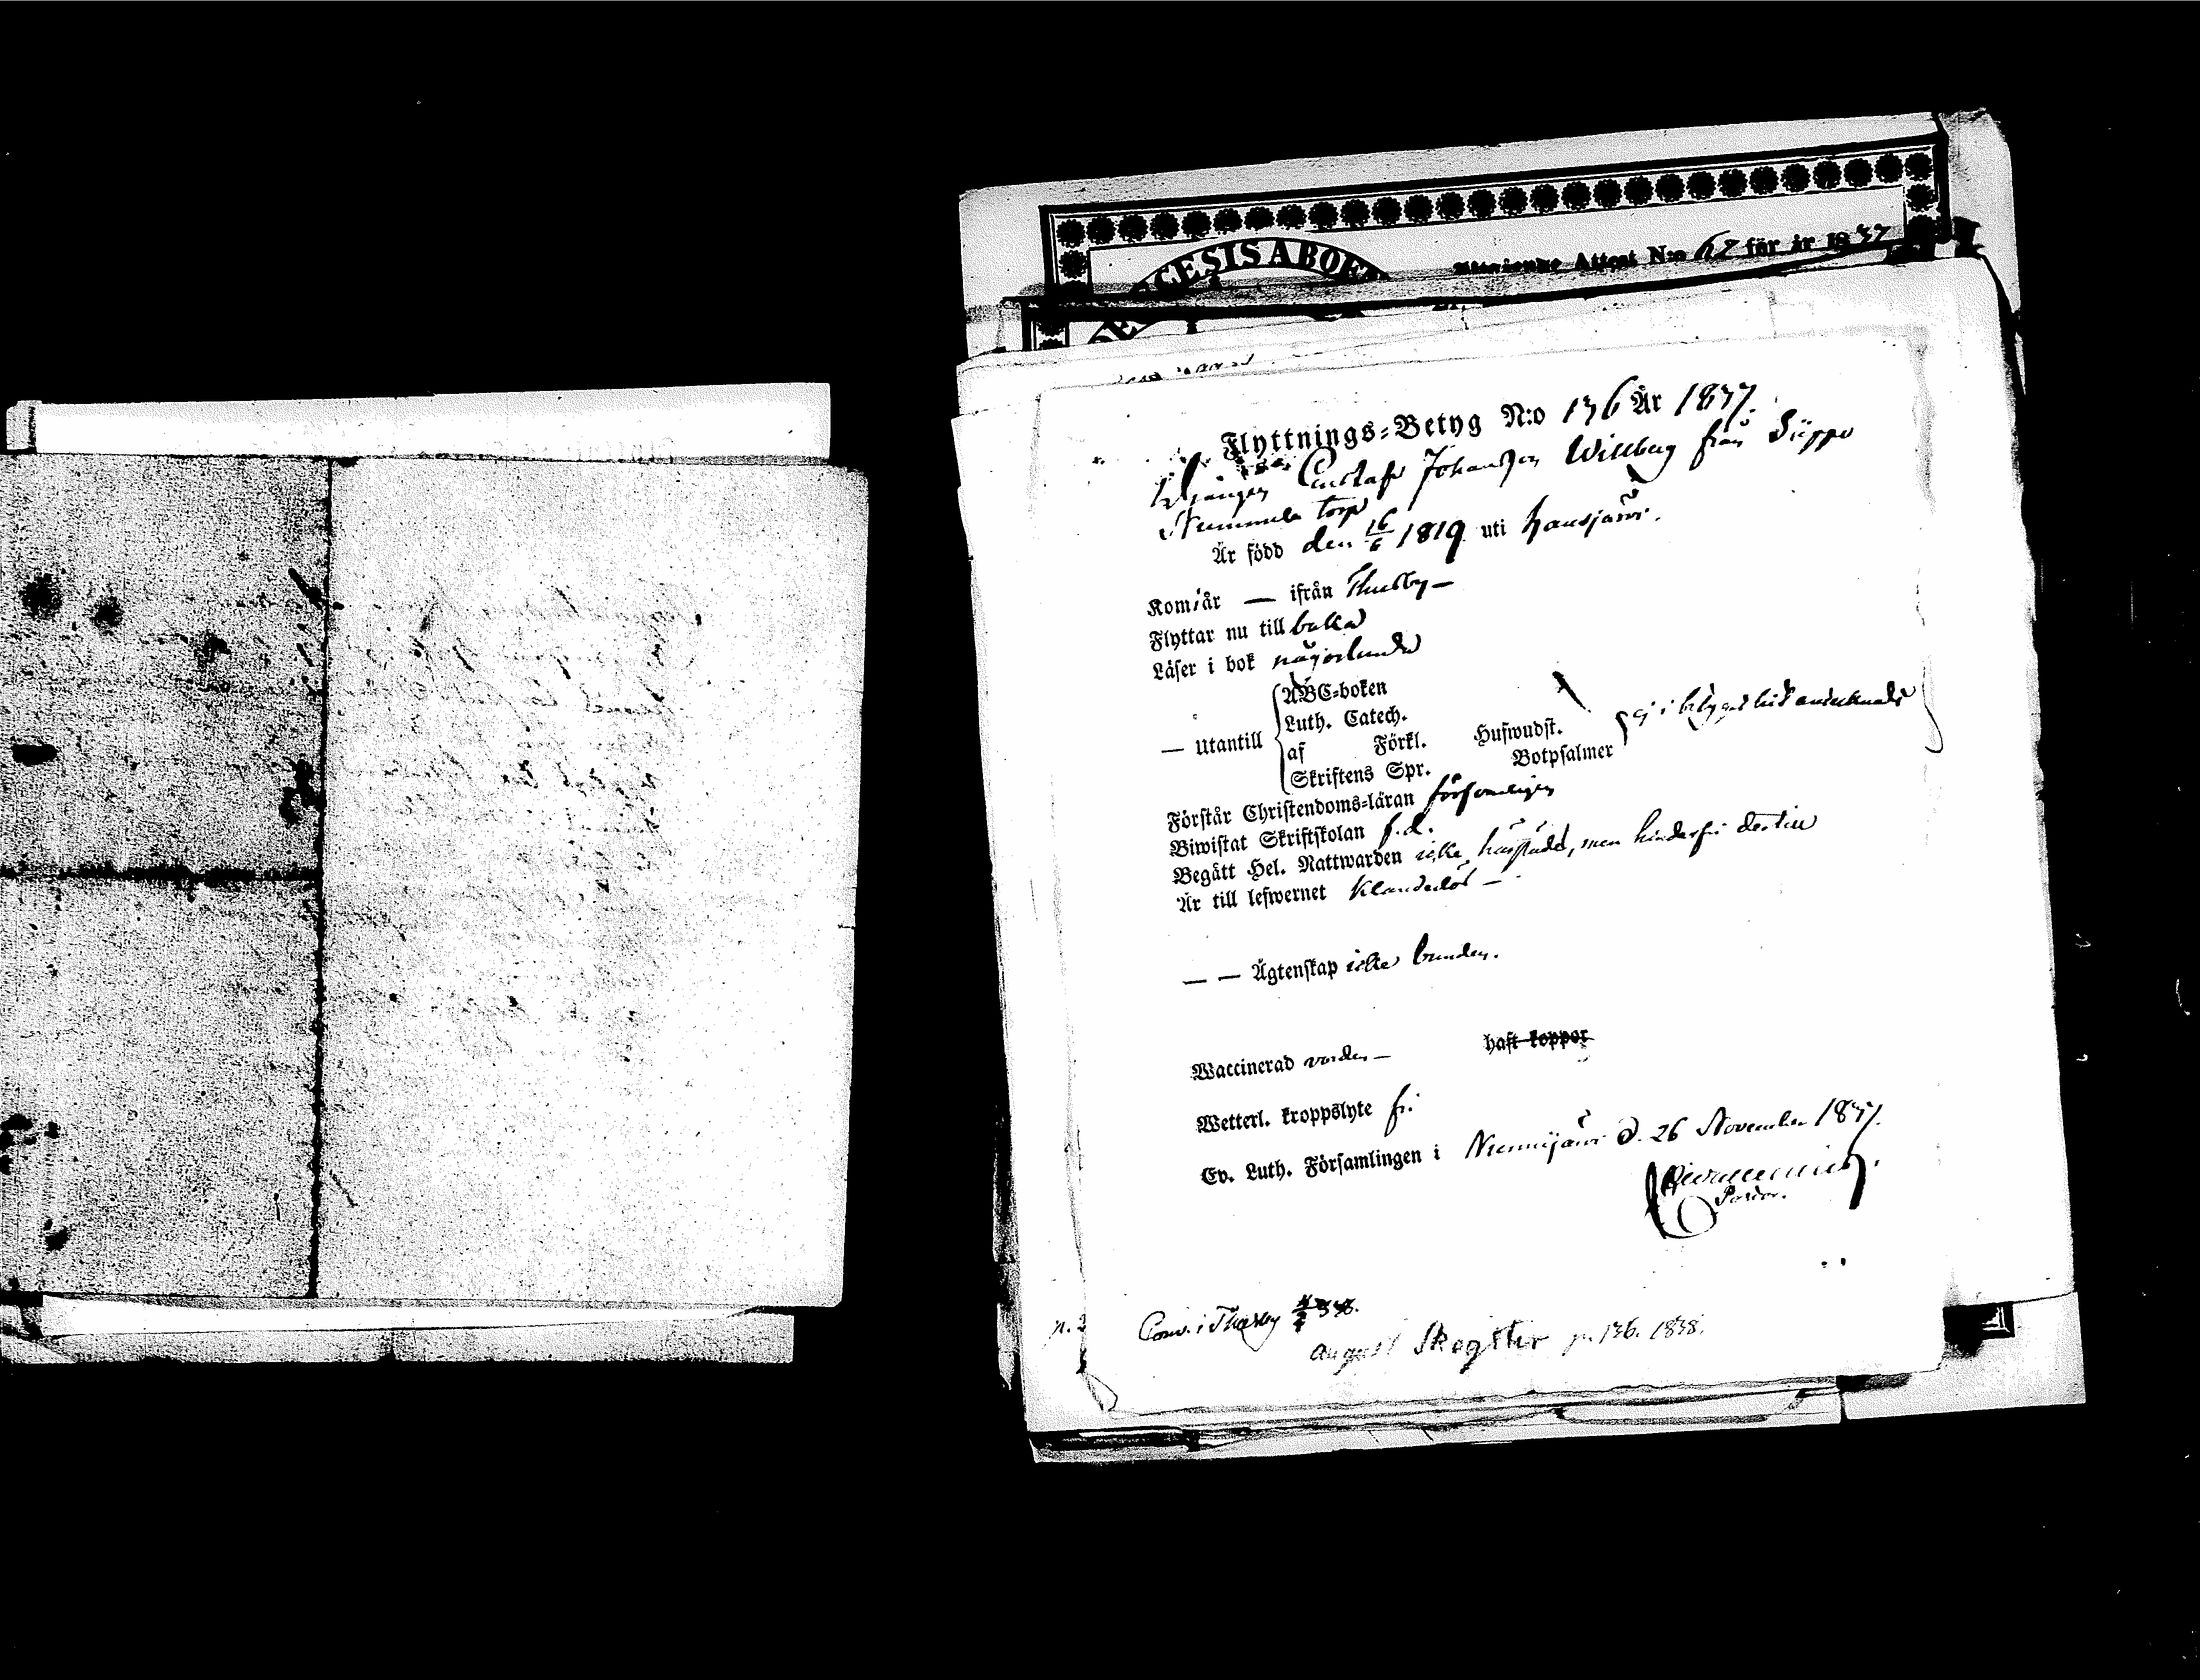 CESIS ABOE
Attest N:o 62 för år 1837
Flyttnings-Betyg N:o 136 År 1837.
Gustaf Johansson Willberg från Siippo
Nummela torp
Är född den 16/6 1819 uti Hausjärvi.
Kom år — ifrån Thusby —
Flyttar nu till baka
Läser i bok någorlunda
— utantill
ABC-boken
Luth. Catech.
af Förkl. Husiwudst.
Skriftens Spr. Botpsalmer
ej i betyget hit antecknadt
Förstår Christendoms-läran försvarligen
Biwistat Skriftskolan f.d.
Begått Hel. Nattwarden icke härstädes, men hinderfri dertill
Är till lefwernet klanderlös —
— — Ägtenskap icke bunden.
Waccinerad vorden — haft koppor
Wetterl. kroppslyte fri
Ev. Luth. Församlingen i Nurmijärvi d. 26 November 1837.
Pastor.
p. 2
i Thusby 38.
August Skogster p. 136. 1838.